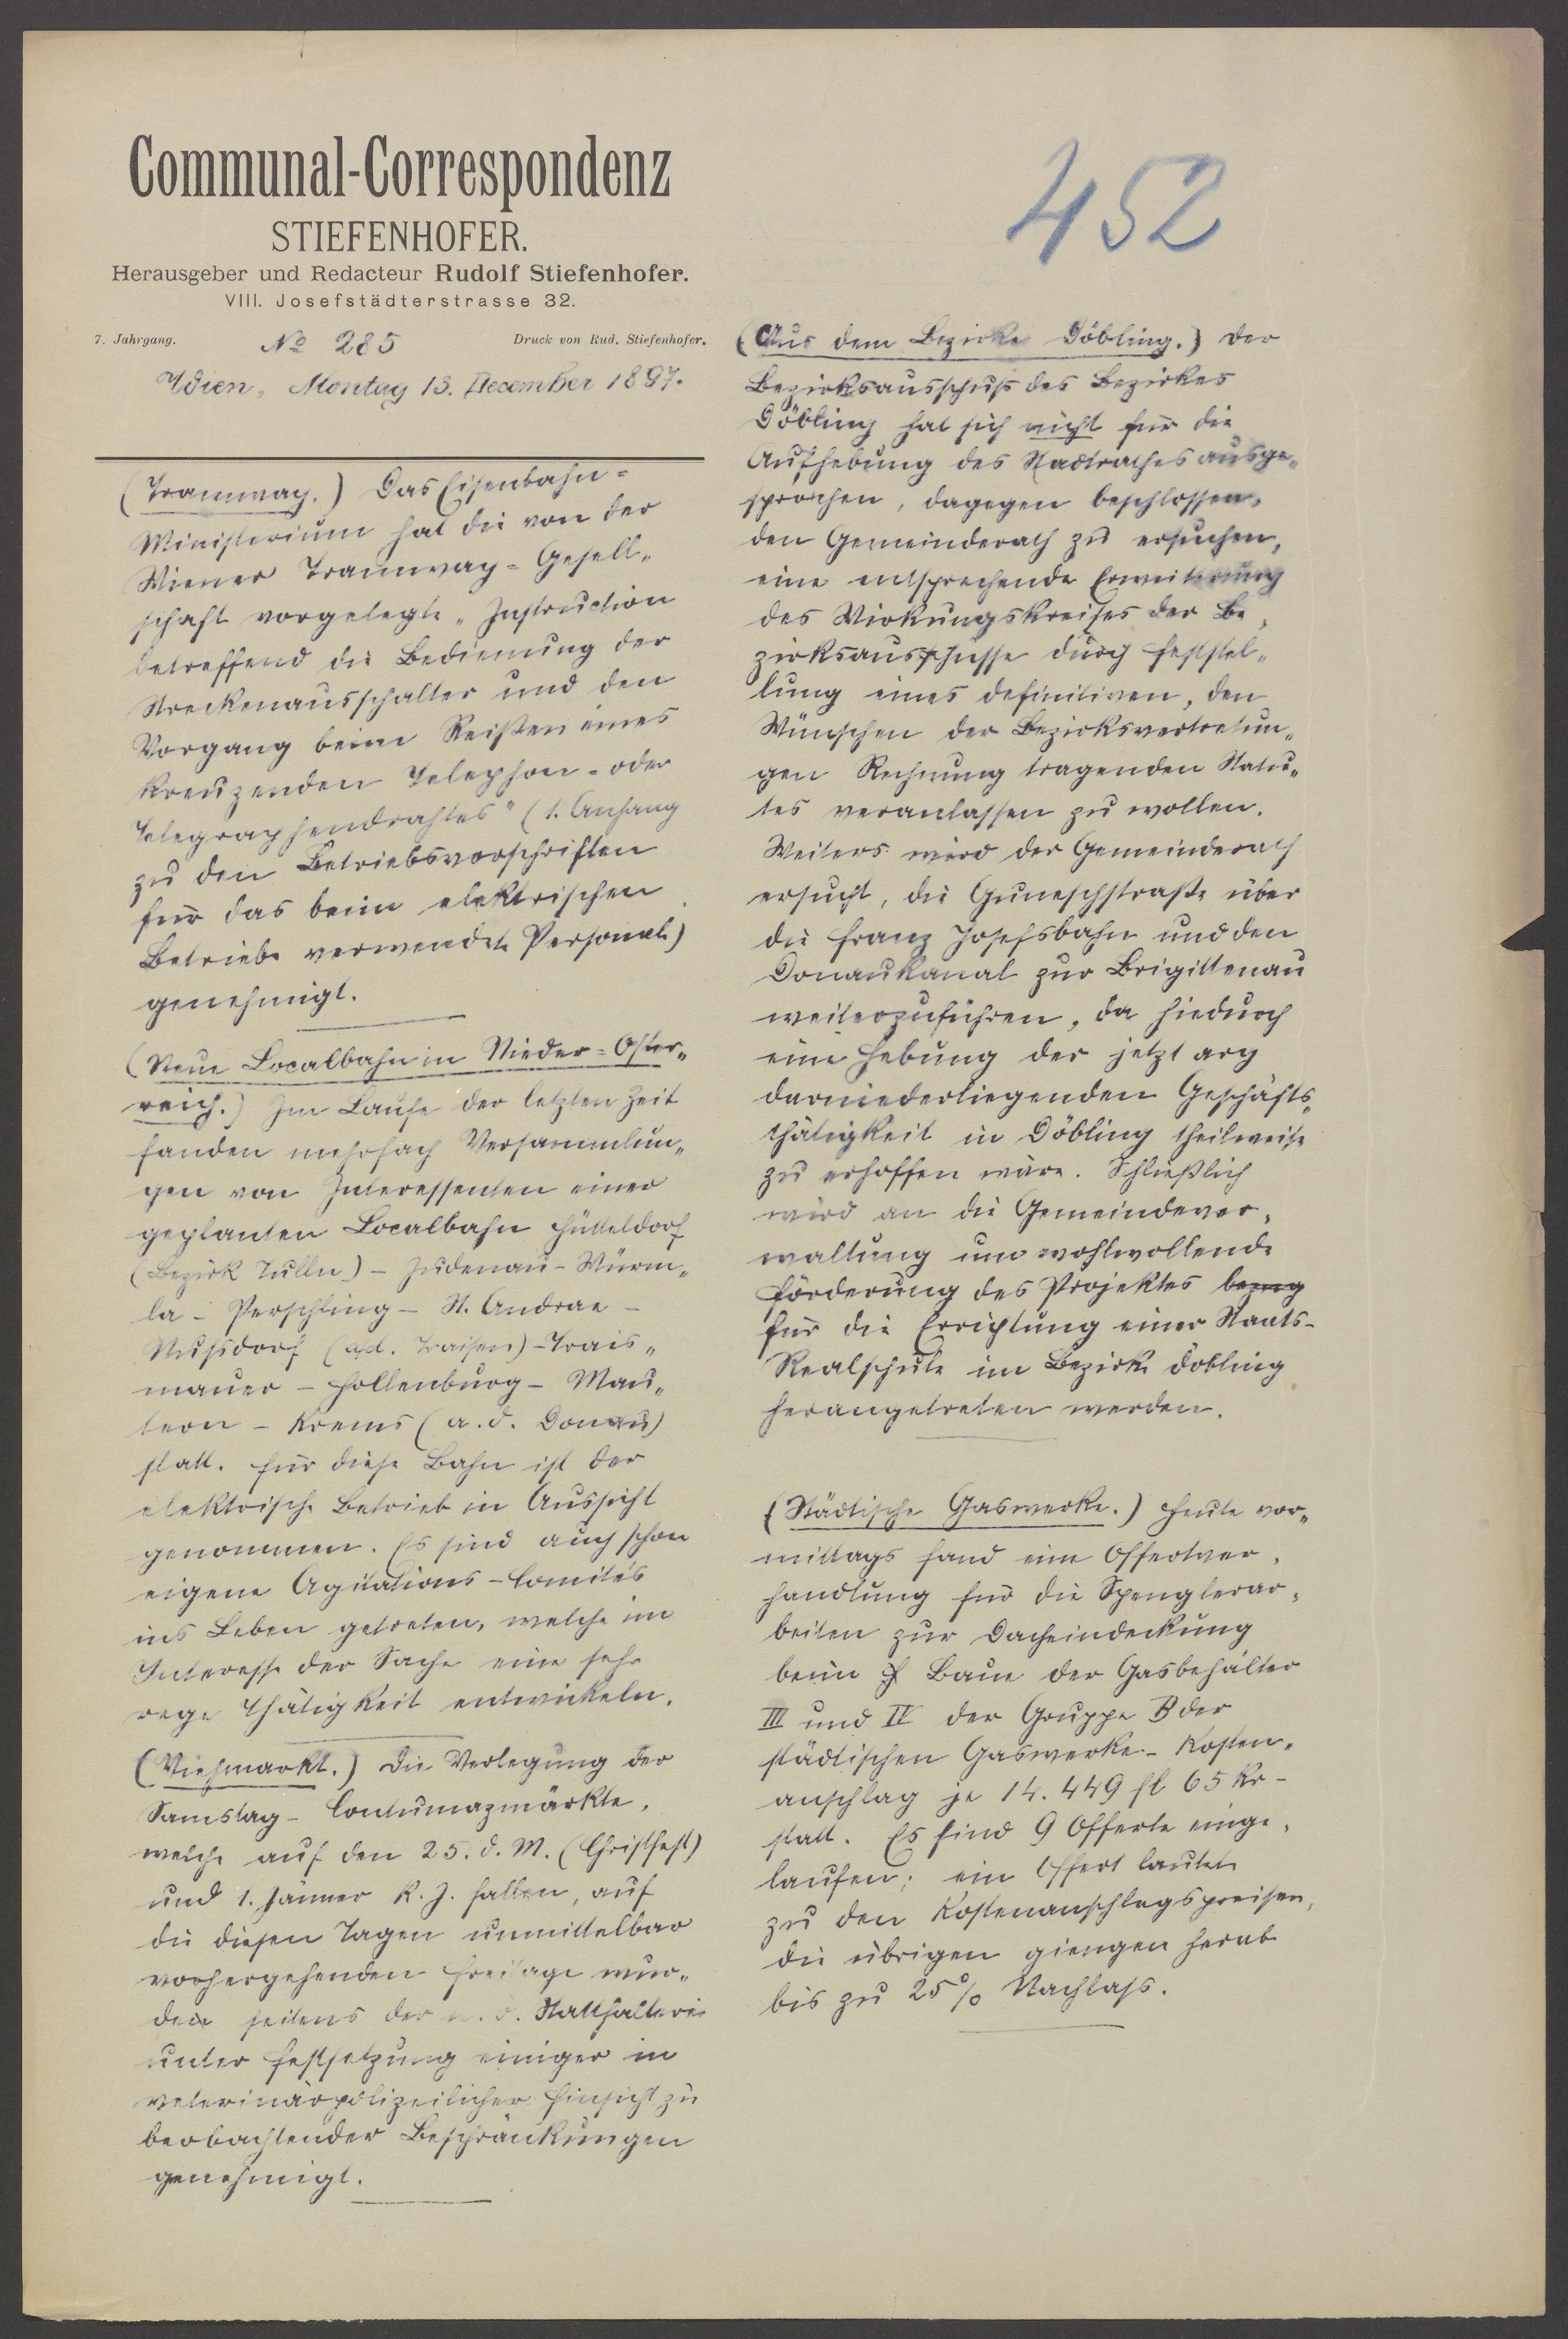 Communal-Correspondenz
STIEFENHOFER.
Herausgeber und Redacteur Rudolf Stiefenhofer.
VIII. Josefstädterstrasse 32.
7. Jahrgang. No 285 Druck von Rud. Stiefenhofer.
Wien, Montag 13. December 1897.
(Tramway.) Das Eisenbahn=
Ministerium hat die von der
Wiener Tramway=Gesell„
schaft vorgelegte „Instruction
betreffend die Bedienung der
Streckenausschalter und den
Vorgang beim Reißen eines
kreuzenden Telephon- oder
Telegraphendrahtes" (1. Anhang
zu den Betriebsvorschriften
für das beim elektrischen
Betriebe verwendete Personal)
genehmigt.
(Neue Localbahn in Nieder=Oster„
reich.) Im Laufe der letzten Zeit
fanden mehrfach Versammlun„
gen von Interessenten einer
geplanten Localbahn Hütteldorf
(Bezirk Tulln) - Judenau - Würm„
la - Perschling - St. Andrae -
Nußdorf (a.d. Traisen) - Trais„
mauer - Hollenburg - Mau„
tern - Krems (a. d. Donau)
statt. Für diese Bahn ist der
elektrische Betrieb in Aussicht
genommen. Es sind auch schon
eigene Agitations-Comités
ins Leben getreten, welche im
Interesse der Sache eine sehr
rege Thätigkeit entwickeln.
(Viehmarkt.) Die Verlegung der
Samstag-Contumazmärkte,
welche auf den 25. d. M. (Christfest)
und 1. Jänner k. J. fallen, auf
die diesen Tagen unmittelbar
vorhergehenden Freitage wur„
den seitens der n. ö. Statthalterei
unter Festsetzung einiger in
veterinärpolizeilicher Hinsicht zu
beobachtender Beschränkungen
genehmigt.
452
(Aus dem Bezirke Döbling.) Der
Bezirksausschuß des Bezirkes
Döbling hat sich nicht für die
Aufhebung des Stadtrathes ausge„
sprochen, dagegen beschlossen,
den Gemeinderath zu ersuchen,
eine entsprechende Erweiterung
des Wirkungskreises der Be„
zirksausschüsse durch Feststel„
lung eines definitiven, den
Wünschen der Bezirksvertretun„
gen Rechnung tragenden Statu„
tes veranlassen zu wollen.
Weiters wird der Gemeinderath
ersucht, die Guneschstraße über
die Franz Josefsbahn und den
Donaukanal zur Brigittenau
weiterzuführen, da hiedurch
eine Hebung der jetzt arg
darniederliegenden Geschäfts„
thätigkeit in Döbling theilweise
zu erhoffen wäre. Schließlich
wird an die Gemeindever„
waltung um wohlwollende
Förderung des Projektes bezug
für die Errichtung einer Staats-
Realschule im Bezirk Döbling
herangetreten werden.
(Städtische Gaswerke.) Heute vor„
mittags fand eine Offertver„
handlung für die Spenglerar„
beiten zur Dacheindeckung
beim Baue der Gasbehälter
III und IV der Gruppe B der
städtischen Gaswerke - Kosten„
anschlag je 14.449 fl 65 Kr -
statt. Es sind 9 Offerte einge„
laufen; ein Offert lautete
zu den Kostenanschlagspreisen,
die übrigen giengen herab
bis zu 25% Nachlaß.